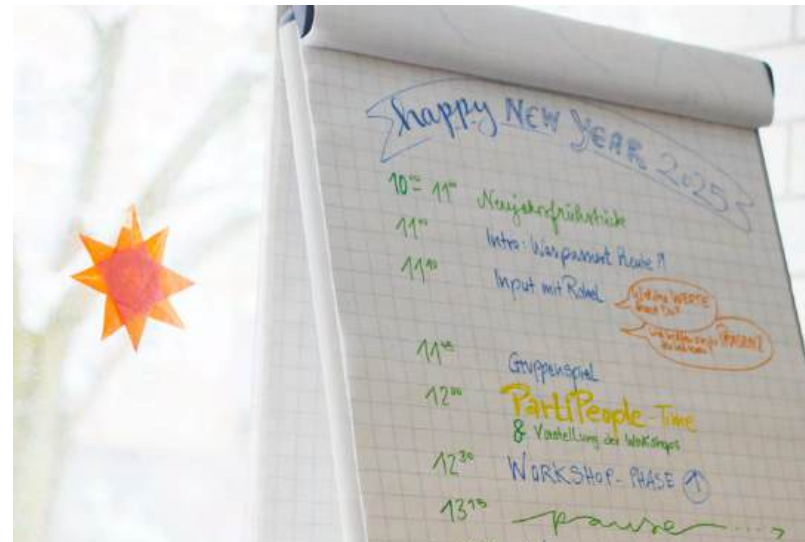 happy NEW YEAR 2025
10⁰⁰ - 11⁰⁰ Neujahrsfrühstück
11⁰⁰ Intro: Was passiert heute?!
11¹⁰ Input mit
WERTE
11⁴⁵ Gruppenspiel
12⁰⁰ PartiPeople-Time
& Vorstellung der Workshops
12³⁰ WORKSHOP-PHASE 1
13¹⁵ pause